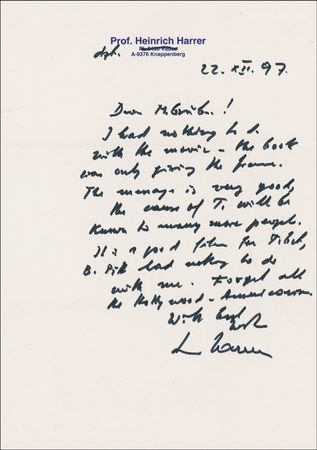 Prof. Heinrich Harrer
A-9376 Knappenberg
22. XII. 97.
Dear
I had nothing to do
with the movie – the book
was only giving the frame.
The message is very good,
the cause of T. will be
known to many more people.
It is a good film for Tibet,
B. Pitt had nothing to do
with me. Forget all
the Hollywood-
With best
H. Harrer